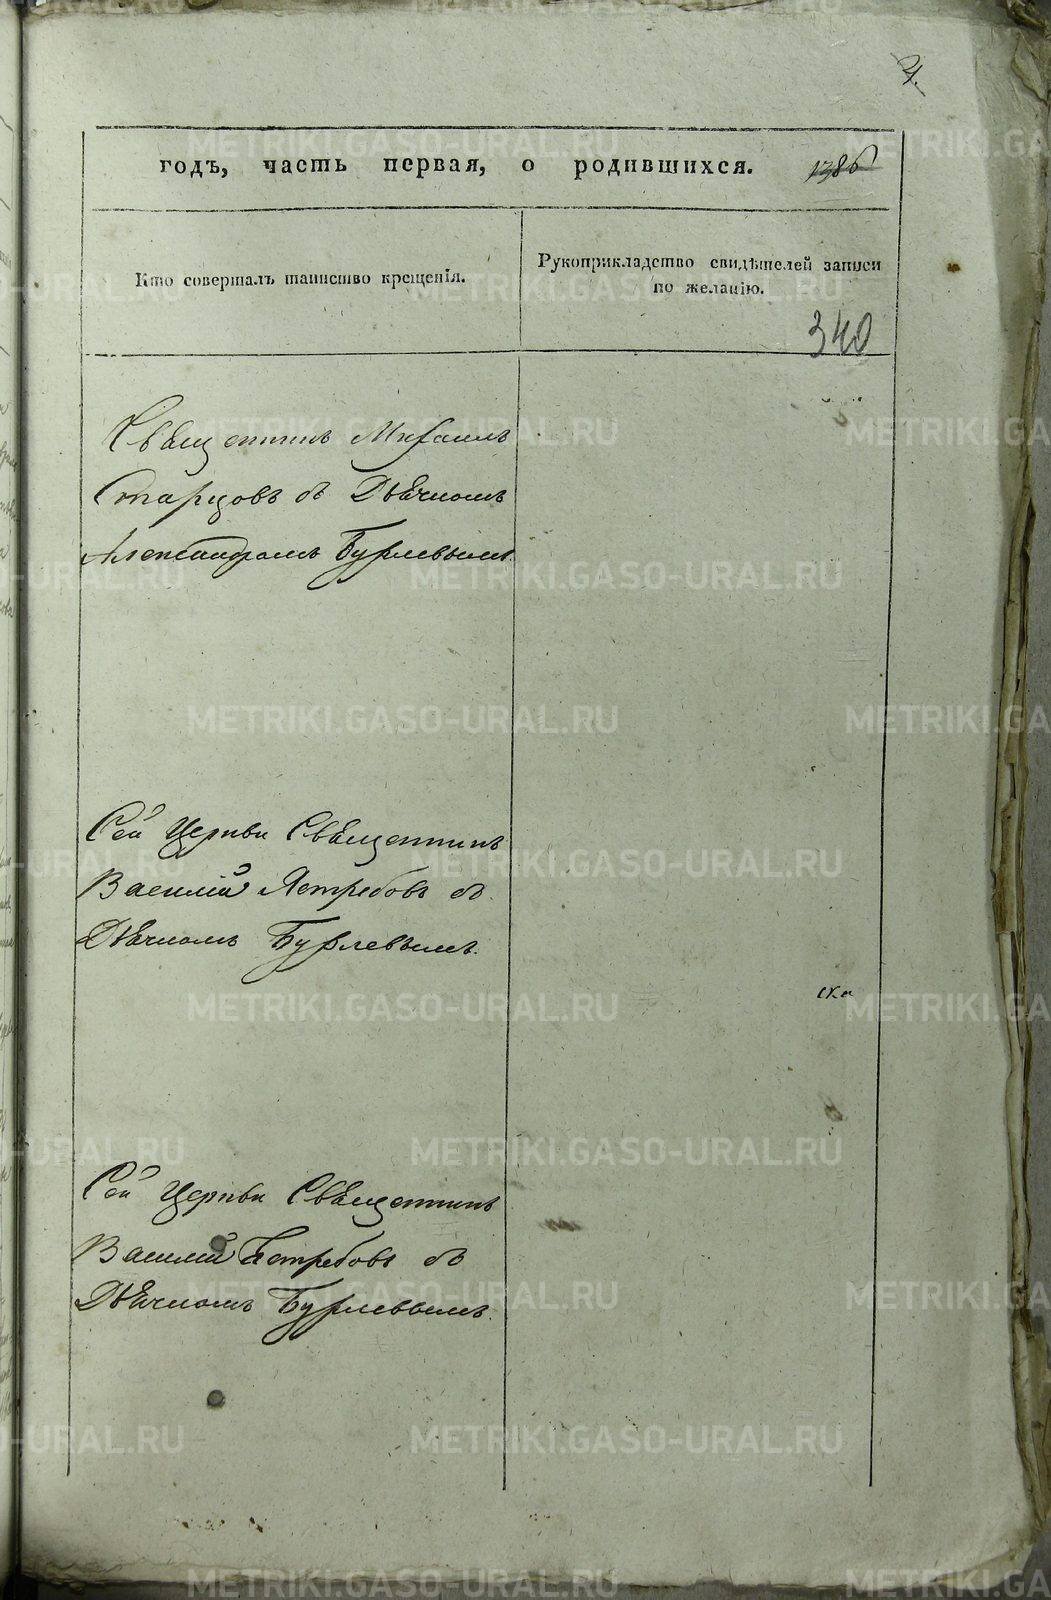 годъ, часть первая, о родившихся. 1386
Кто совершалъ таинство крещенія.
Рукоприкладство свидѣтелей записи
по желанію.
340
Священникъ Михаилъ
Старцовъ съ Дьячкомъ
Александромъ Бурлевымъ
Сей Церкви Священникъ
Василій Ястребовъ съ
Дьячкомъ Бурлевымъ.
Сей Церкви Священникъ
Василій Ястребовъ съ
Дьячкомъ Бурлевымъ.
METRIKI.GASO-URAL.RU